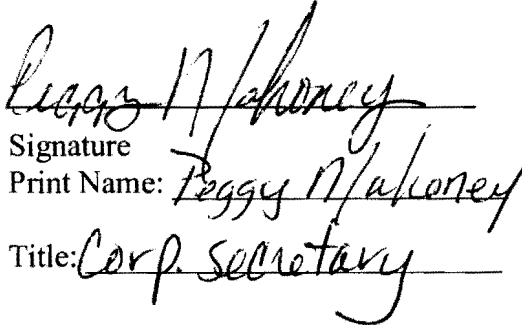 Peggy Mahoney
Signature
Print Name: Peggy Mahoney
Title: Corp. Secretary